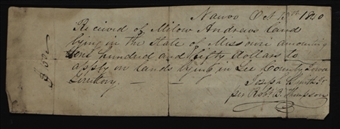 Nauvoo Oct 1840
Received of Milow Andrews Land
lying in the State of Missouri amounting
one hundred and fifty dollars to
apply on lands lying in Lee County Iowa
Territory
Joseph Smith
per Robt B. Thompson